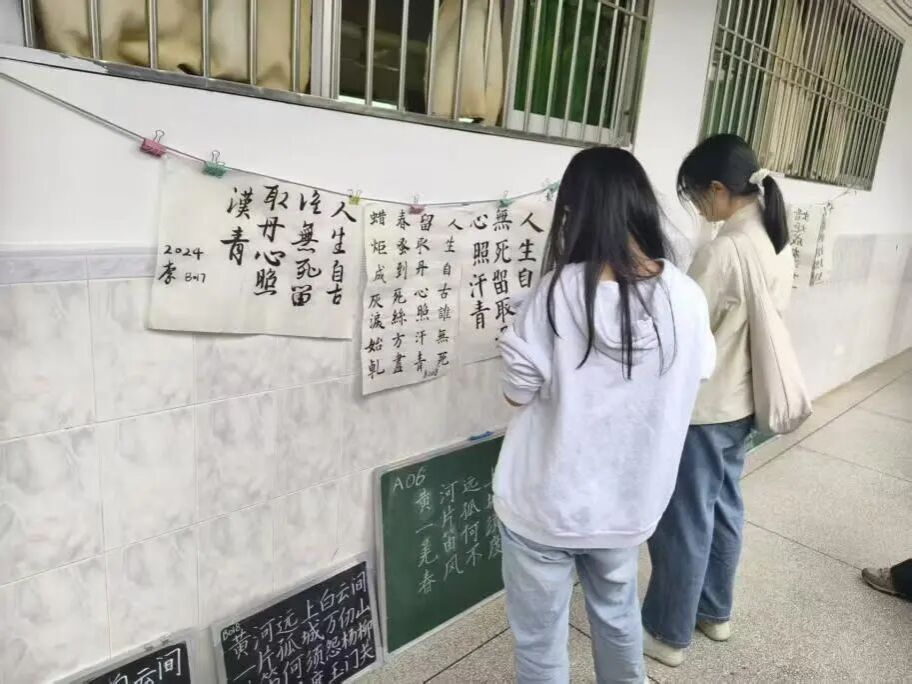 人生自古
谁無死留
取丹心照
漢青
2024
李 B017
人生自古誰無死
留取丹心照汗青
春蚕到死絲方盡
蜡炬成灰淚始乹
人生自
無死留取
心照汗青
A06
黄河远
一片孤
羌笛何须
春风不度
B018
黄河远上白云间
一片孤城万仞山
笛何须怨杨柳
度玉门关
白云间